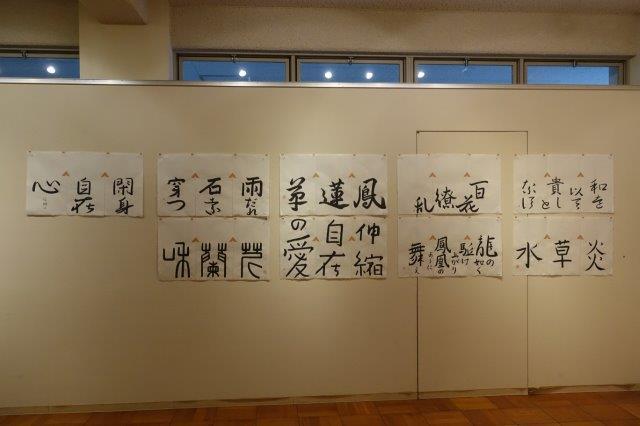 和を
以て
貴しと
炎
草
水
百花
繚
乱
龍の
如く
駆け
上がり
鳳凰の
ように
舞え
鳳
蓮
草
伸縮
自在
の愛
雨だれ
石を
穿つ
蘭
閑身
自在
心